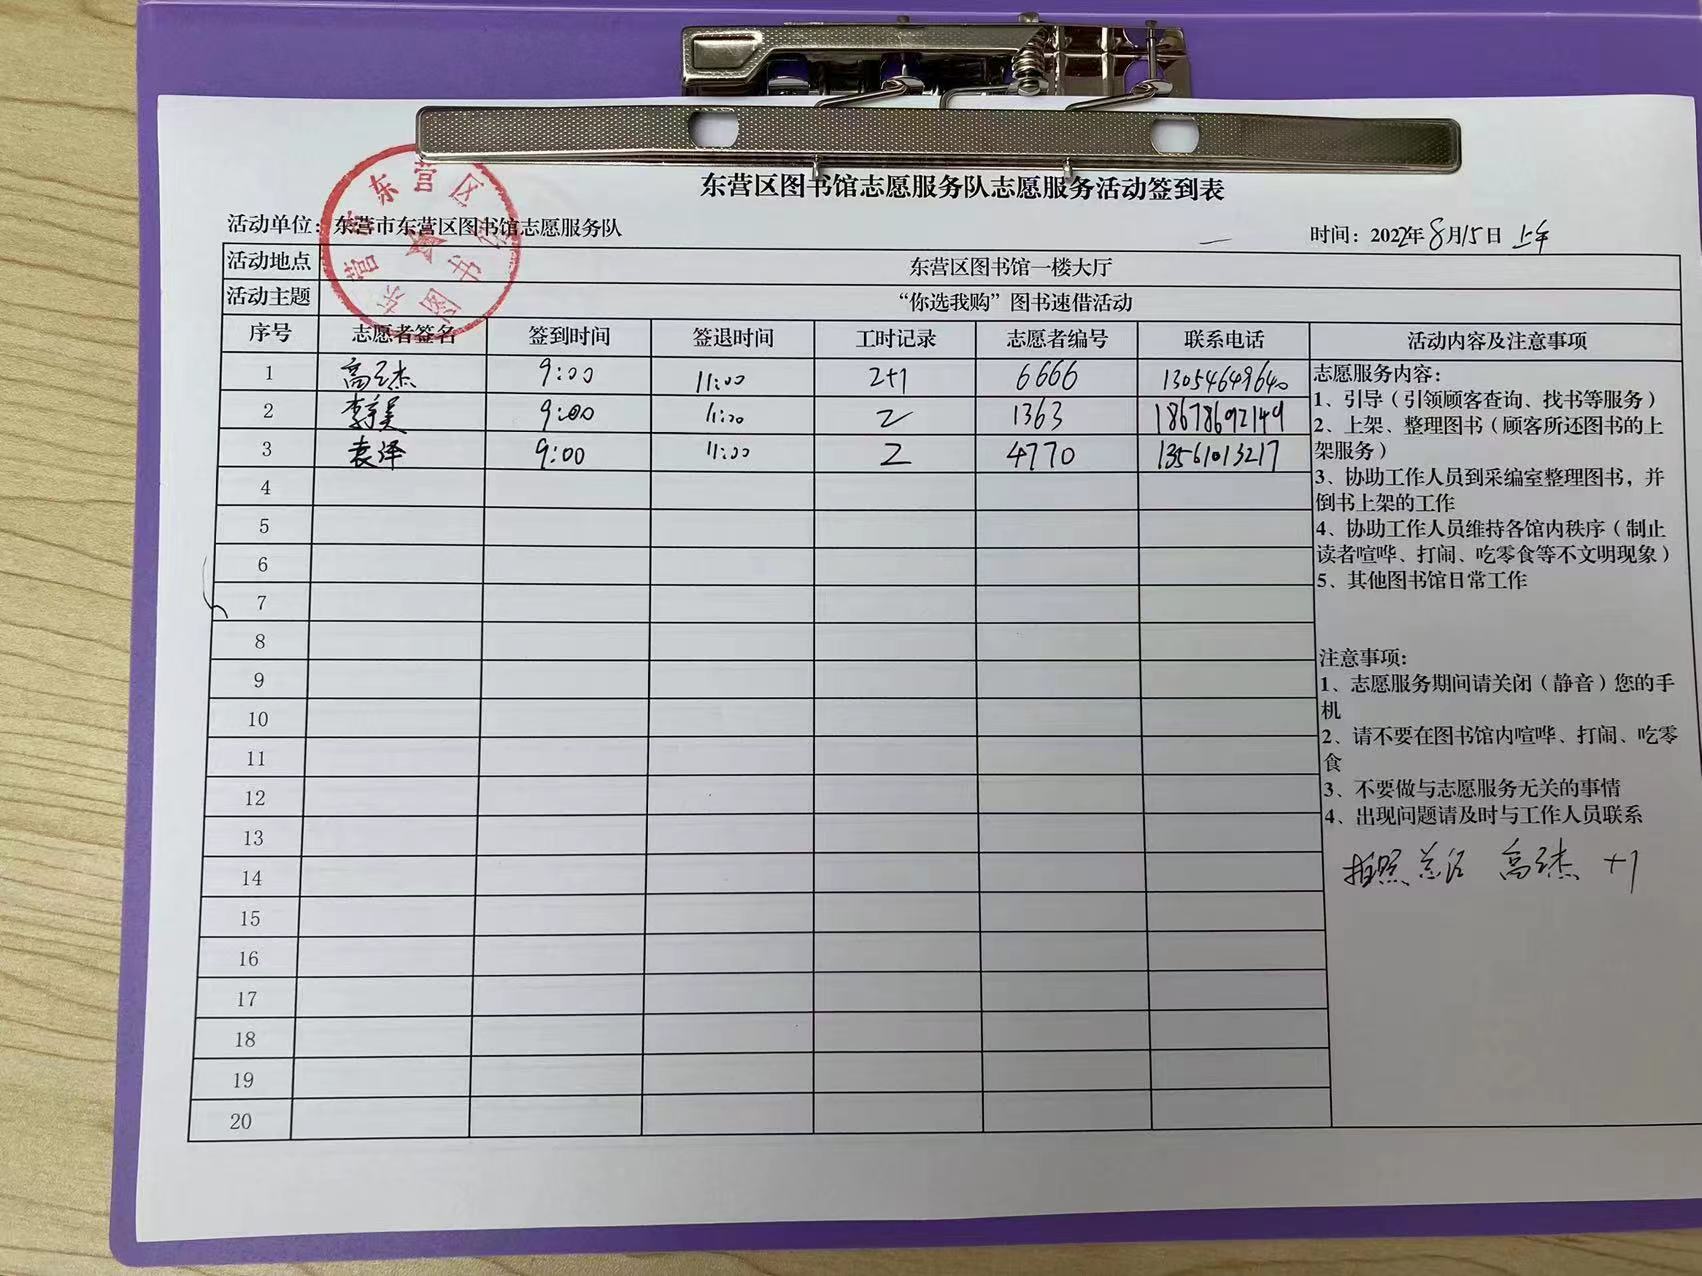 东营区图书馆志愿服务队志愿服务活动签到表
活动单位：东营市东营区图书馆志愿服务队 时间：2022年8月15日 上午
活动地点 东营区图书馆一楼大厅
活动主题 “你选我购”图书速借活动
序号 志愿者签名 签到时间 签退时间 工时记录 志愿者编号 联系电话 活动内容及注意事项
1 高云杰 9:00 11:00 2+1 6666 13054649640
2 9:00 11:00 2 1363 18678692149
3 袁泽 9:00 11:00 2 4770 13561013217
4
5
6
7
8
9
10
11
12
13
14
15
16
17
18
19
20
志愿服务内容：
1、引导（引领顾客查询、找书等服务）
2、上架、整理图书（顾客所还图书的上
架服务）
3、协助工作人员到采编室整理图书，并
倒书上架的工作
4、协助工作人员维持各馆内秩序（制止
读者喧哗、打闹、吃零食等不文明现象）
5、其他图书馆日常工作
注意事项：
1、志愿服务期间请关闭（静音）您的手
机
2、请不要在图书馆内喧哗、打闹、吃零
食
3、不要做与志愿服务无关的事情
4、出现问题请及时与工作人员联系
拍照 总结 高云杰 +1